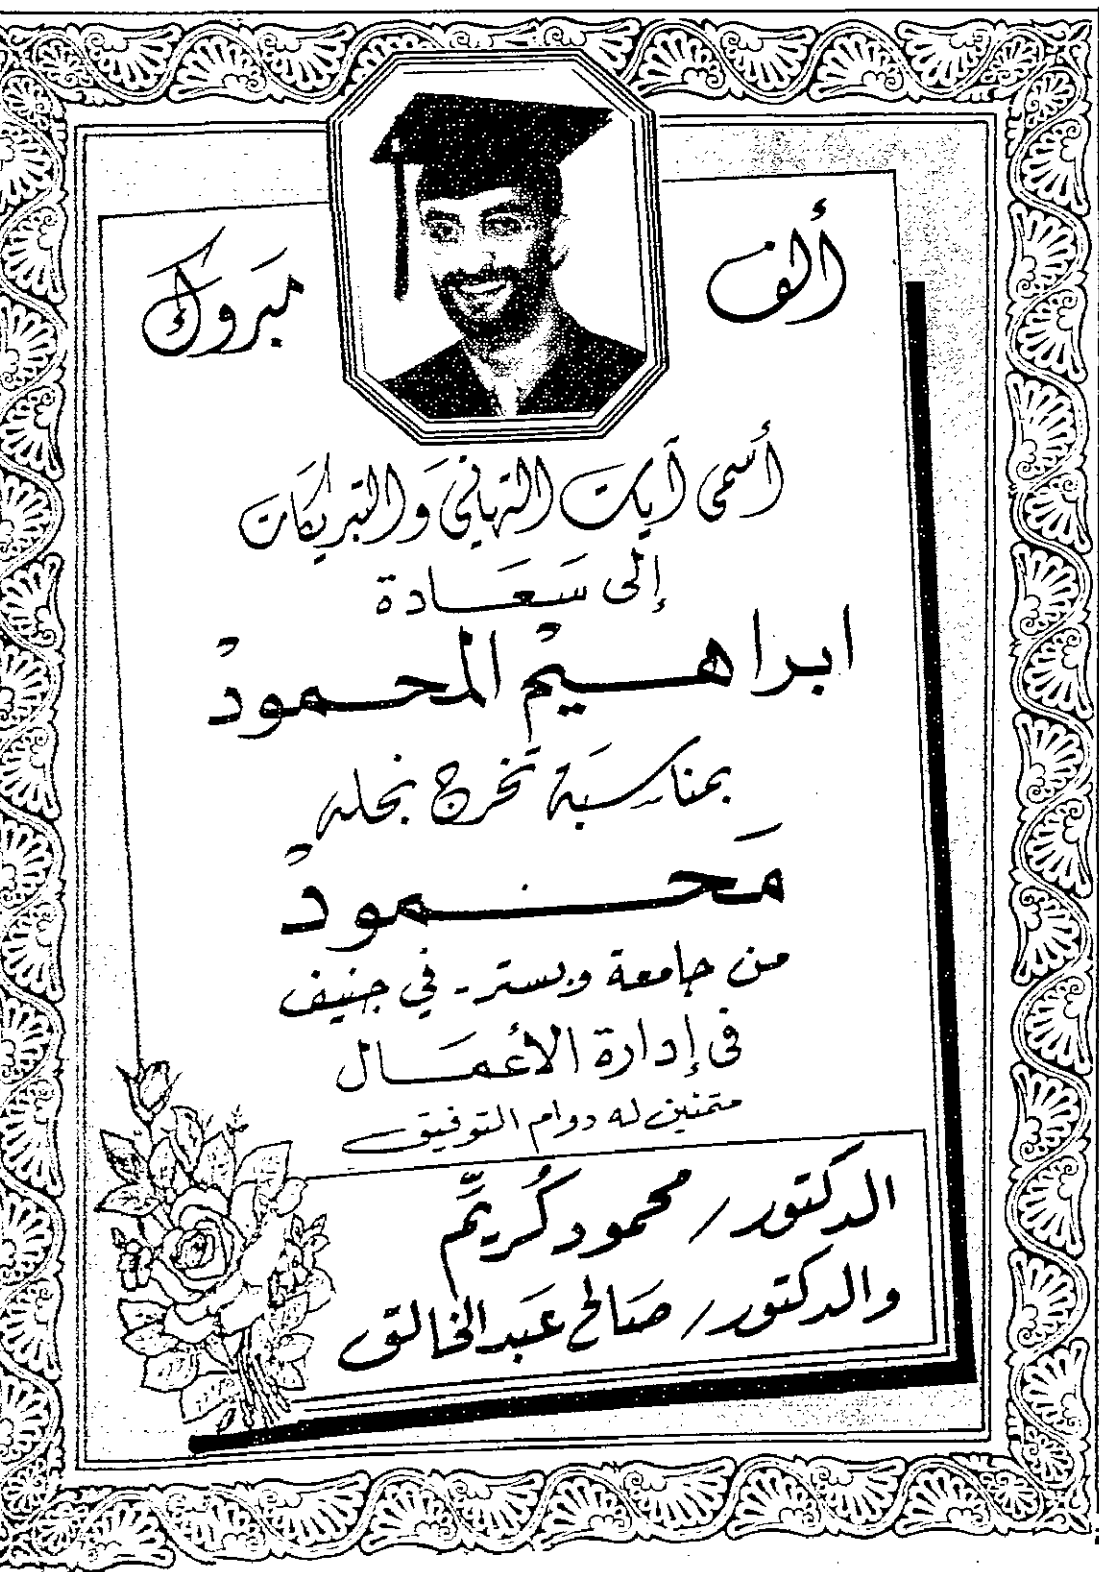 ألف مبروك
أسمى آيات التهاني والتبريكات
إلى سعادة
ابراهيم المحمود
بمناسبة تخرج نجله
محمود
من جامعة وبستر - في جنيف
في إدارة الأعمال
متمنين له دوام التوفيق
الدكتور / محمود كُريّم
والدكتور / صالح عبد الخالق